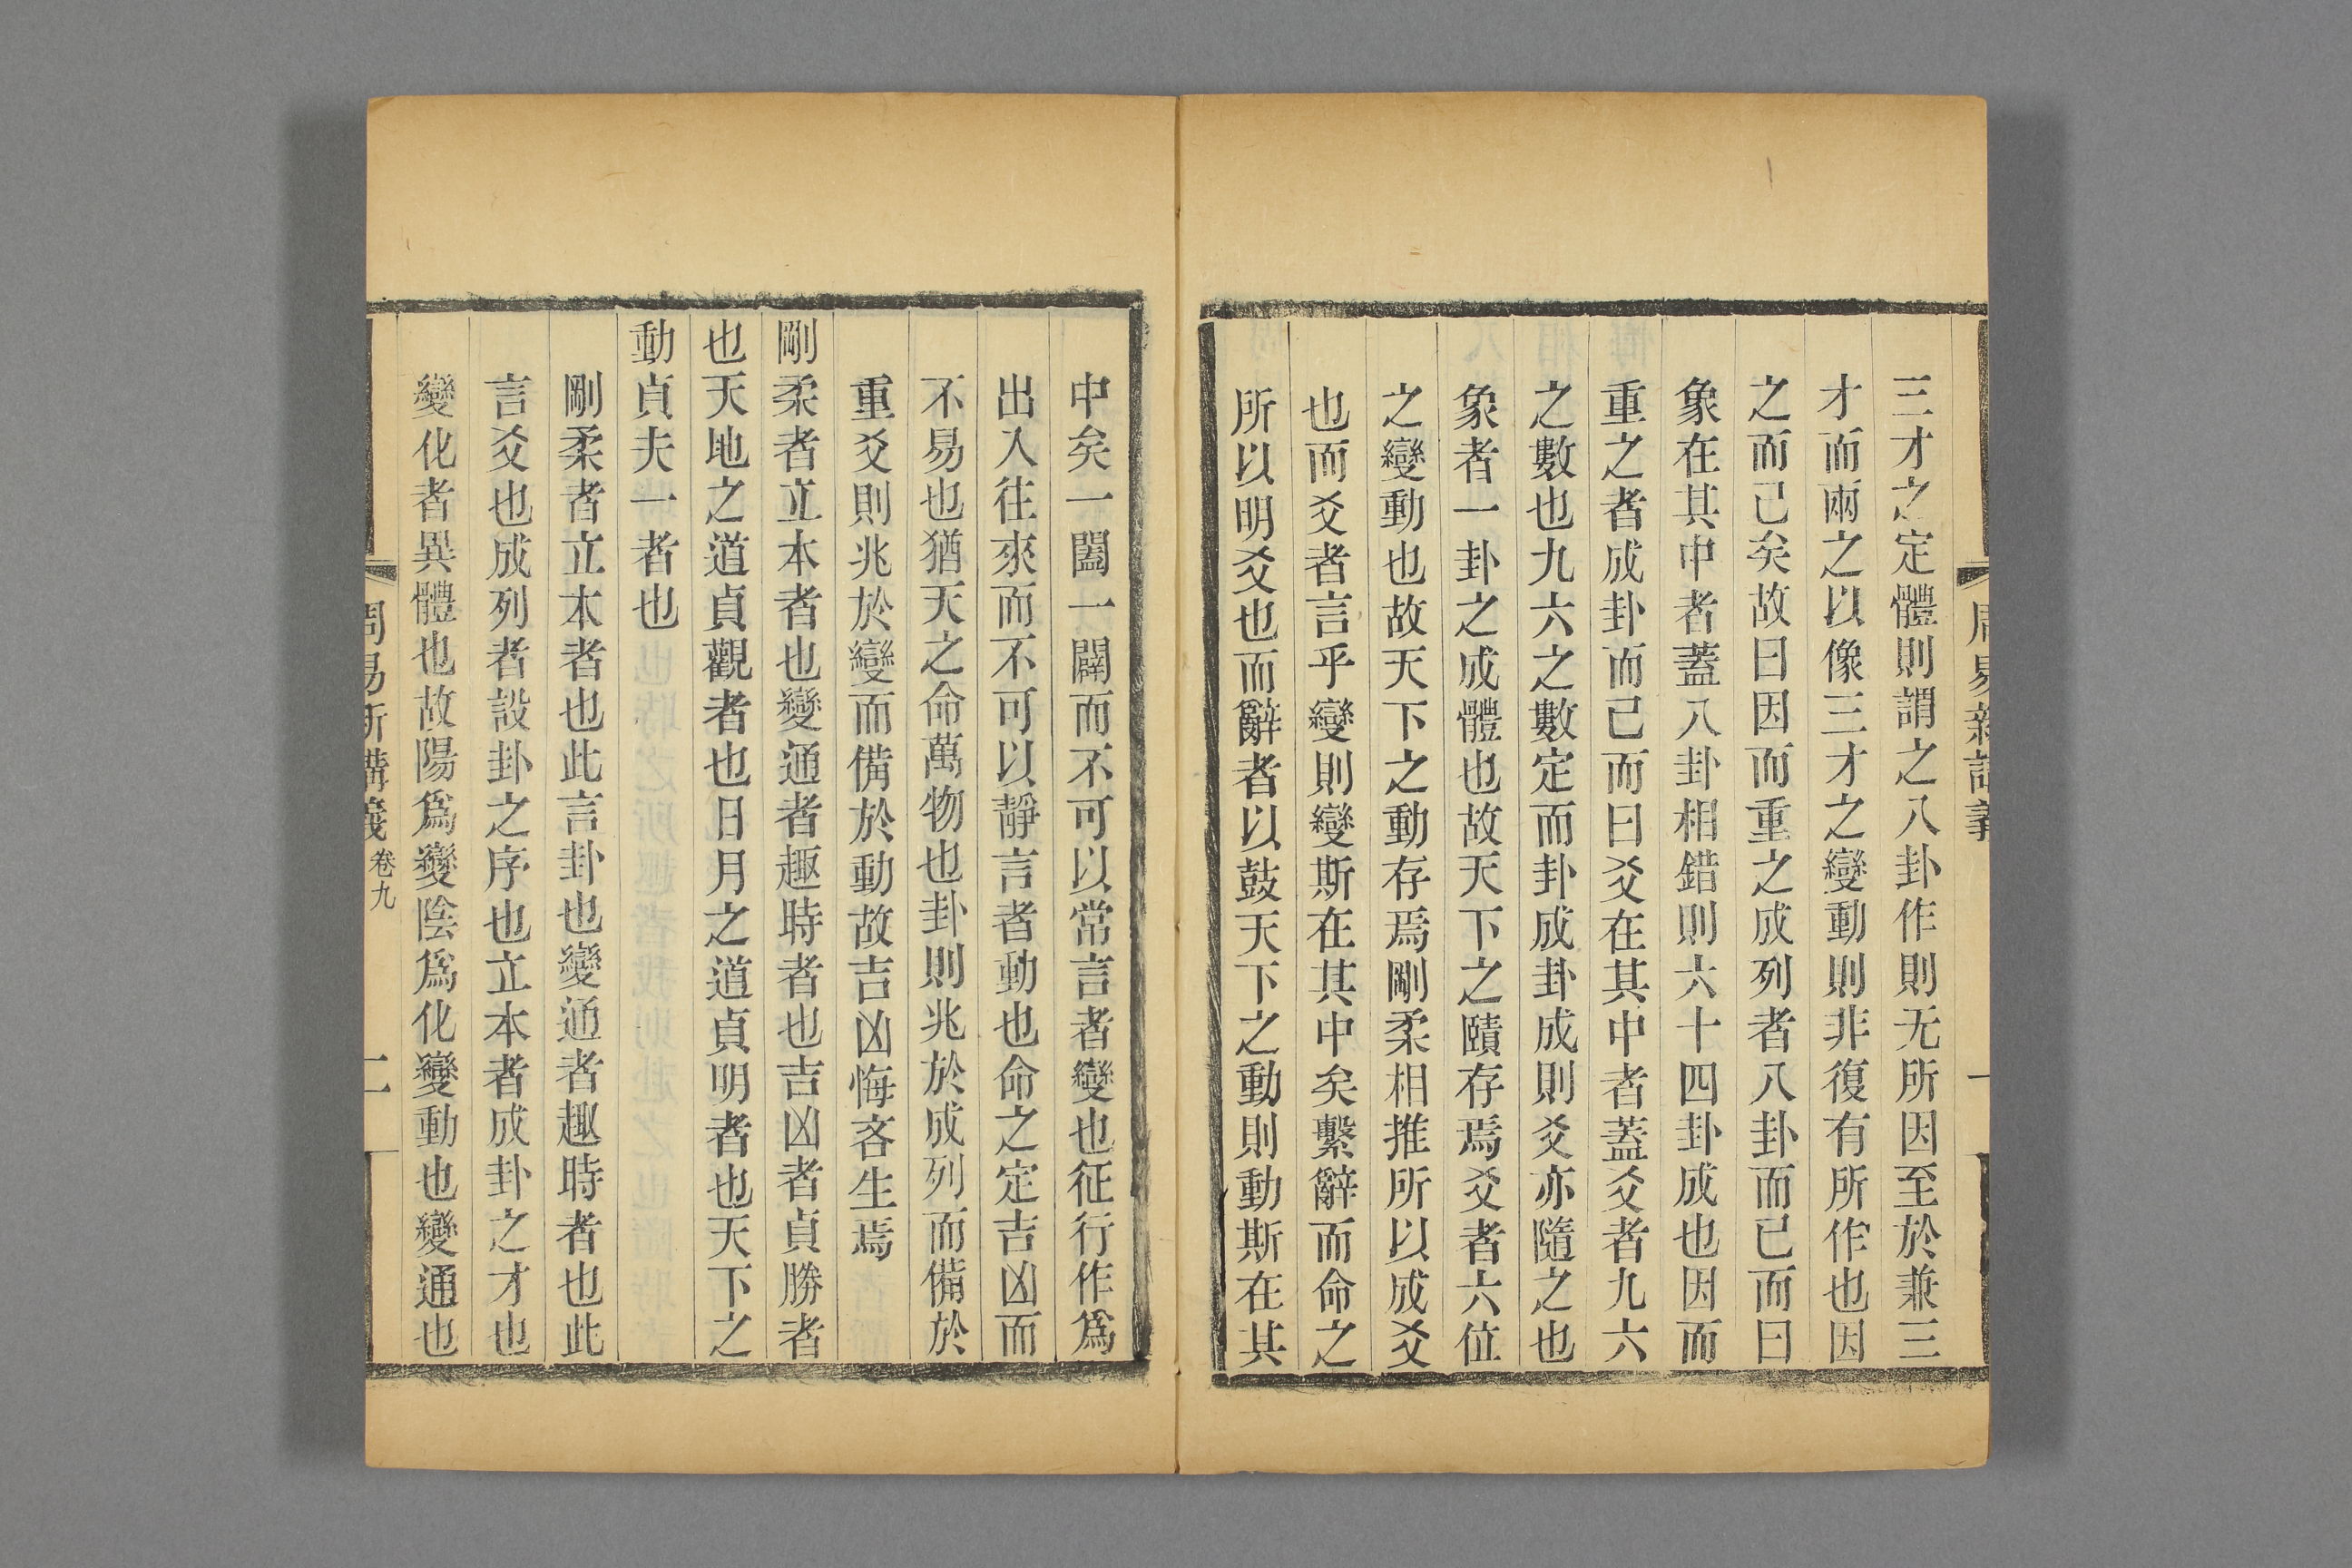 三才之定體則謂之八卦作則无所因至於兼三
才而兩之以像三才之變動則非復有所作也因
之而已矣故曰因而重之成列者八卦而已而曰
象在其中者蓋八卦相錯則六十四卦成也因而
重之者成卦而已而曰爻在其中者蓋爻者九六
之數也九六之數定而卦成卦成則爻亦隨之也
象者一卦之成體也故天下之賾存焉爻者六位
之變動也故天下之動存焉剛柔相推所以成爻
也而爻者言乎變則變斯在其中矣繫辭而命之
所以明爻也而辭者以鼓天下之動則動斯在其
中矣一闔一闢而不可以常言者變也征行作爲
出入往來而不可以靜言者動也命之定吉凶而
不易也猶天之命萬物也卦則兆於成列而備於
重爻則兆於變而備於動故吉凶悔吝生焉
剛柔者立本者也變通者趣時者也吉凶者貞勝者
也天地之道貞觀者也日月之道貞明者也天下之
動貞夫一者也
剛柔者立本者也此言卦也變通者趣時者也此
言爻也成列者設卦之序也立本者成卦之才也
變化者異體也故陽爲變陰爲化變動也變通也
周易新講義 卷九 二